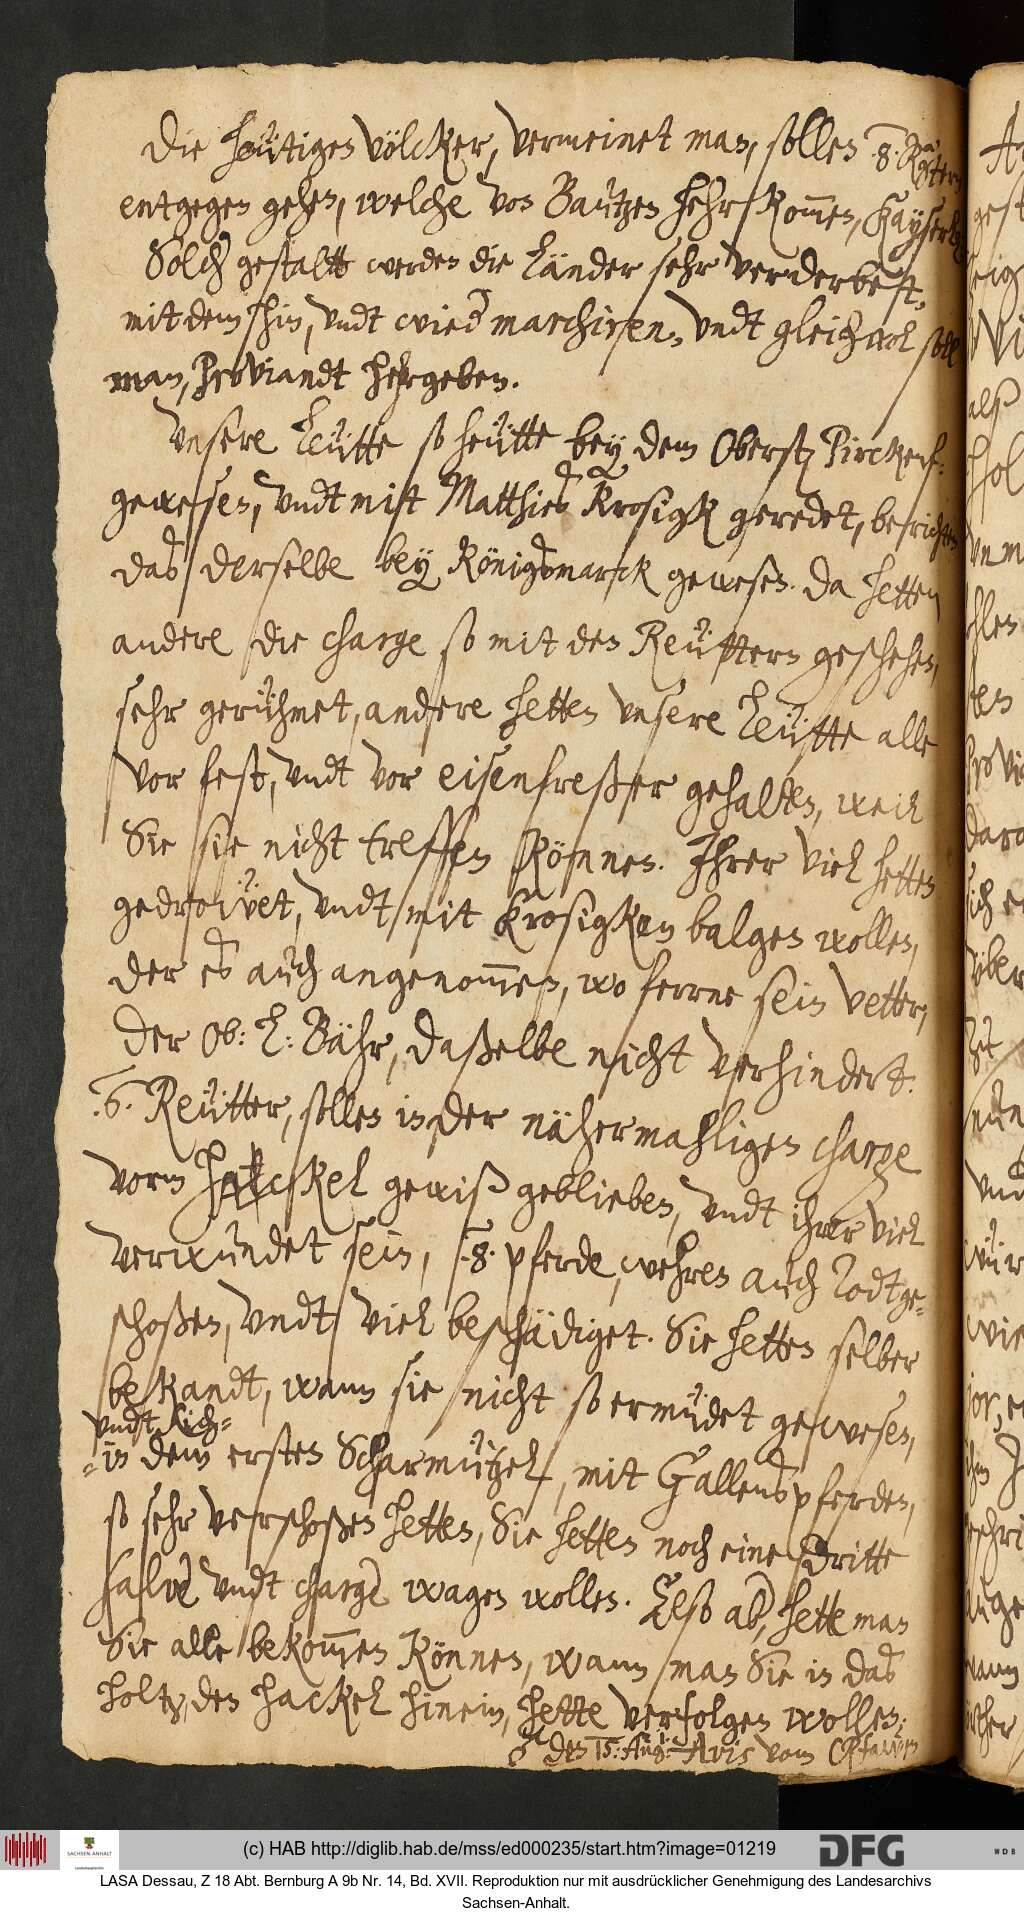 Die heütigen völcker, vermeinet man, sollen .8. Rgtern
entgegen gehen, welche von Bautzen hehr kommen, Kayserl:
Solch gestaltt werden die Länder sehr verderbet,
mit dem hin, undt wieder marchiren, undt gleichwol soll
man, Proviandt hehrgeben.
Unsere Leütte so heütte bey dem Obersten Pirckenf:
gewesen, undt mitt Matthies Krosigk geredet, berichten
das derselbe bey Königsmarck gewesen. Da hetten
andere die charge so mit den Reüttern geschehen,
sehr gerühmet, andere hetten unsere Leütte alle
vor fest, undt vor eisenfreßer gehalten, weil
Sie sie nicht treffen können. Ihrer viel hetten
gedroüet, undt mit Krosigken balgen wollen,
der es auch angenommen, wo ferrne sein vetter,
der Ob: L: Bähr, daßelbe nicht verhindert.
.6. Reütter, sollen in der nähermahligen charge
vorm Hackel gewiß geblieben, undt ihrer viel
verwundet sein, .8. pferde, wehren auch Todtge-
schoßen, undt viel beschädiget. Sie hetten selber
bekandt, wann sie nicht so ermüdet gewesen,
undt sich
in dem ersten Scharmützel, mit Gallens pferden,
so sehr verschoßen hetten, Sie hetten noch eine dritte
salve undt charge wagen wollen. Also aber, hette man
Sie alle bekommen können, wann man Sie in das
holtz, den Hackel hinein, hette verfolgen wollen.
den 15. Aug: Avis vom
(c) HAB http://diglib.hab.de/mss/ed000235/start.htm?image=01219
SACHSEN-ANHALT
DFG
WDB
LASA Dessau, Z 18 Abt. Bernburg A 9b Nr. 14, Bd. XVII. Reproduktion nur mit ausdrücklicher Genehmigung des Landesarchivs
Sachsen-Anhalt.